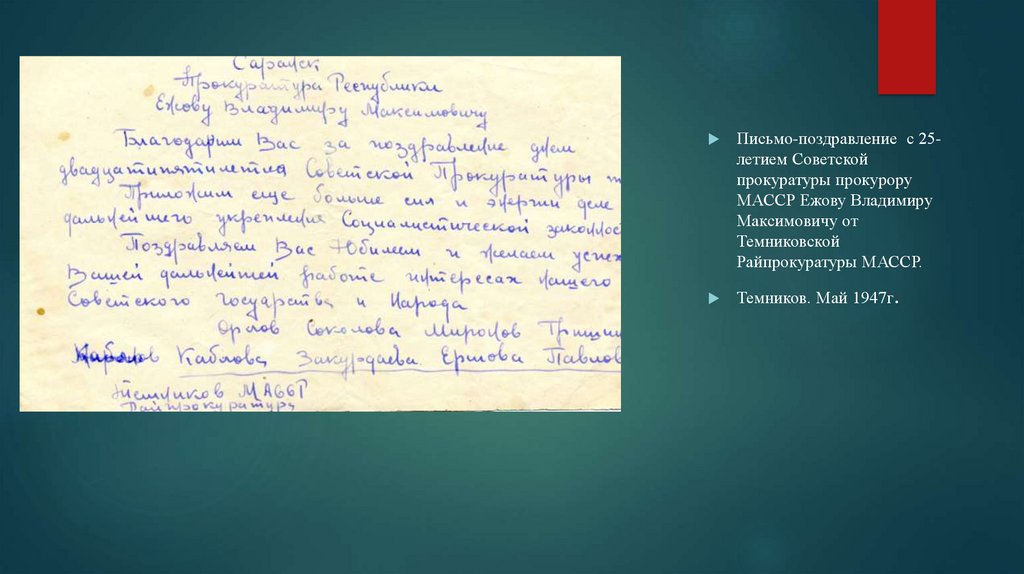 Саранск
Прокуратура Республики
Ежову Владимиру Максимовичу
Благодарим Вас за поздравление днем
двадцатипятилетия Советской Прокуратуры
Приложим еще больше сил и энергии деле
дальнейшего укрепления Социалистической законнос
Поздравляем Вас Юбилеем и желаем успех
Вашей дальнейшей работе интересах нашего
Советского Государства и Народа
Орлов Соколова Миронов Гришин
Каблова Закурдаева Ершова Павлов
Темников МАССР
Райпрокуратура
Письмо-поздравление с 25-
летием Советской
прокуратуры прокурору
МАССР Ежову Владимиру
Максимовичу от
Темниковской
Райпрокуратуры МАССР.
Темников. Май 1947г.